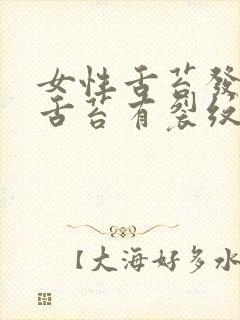 女性舌苔發
舌苔有裂紋
【大海好多水